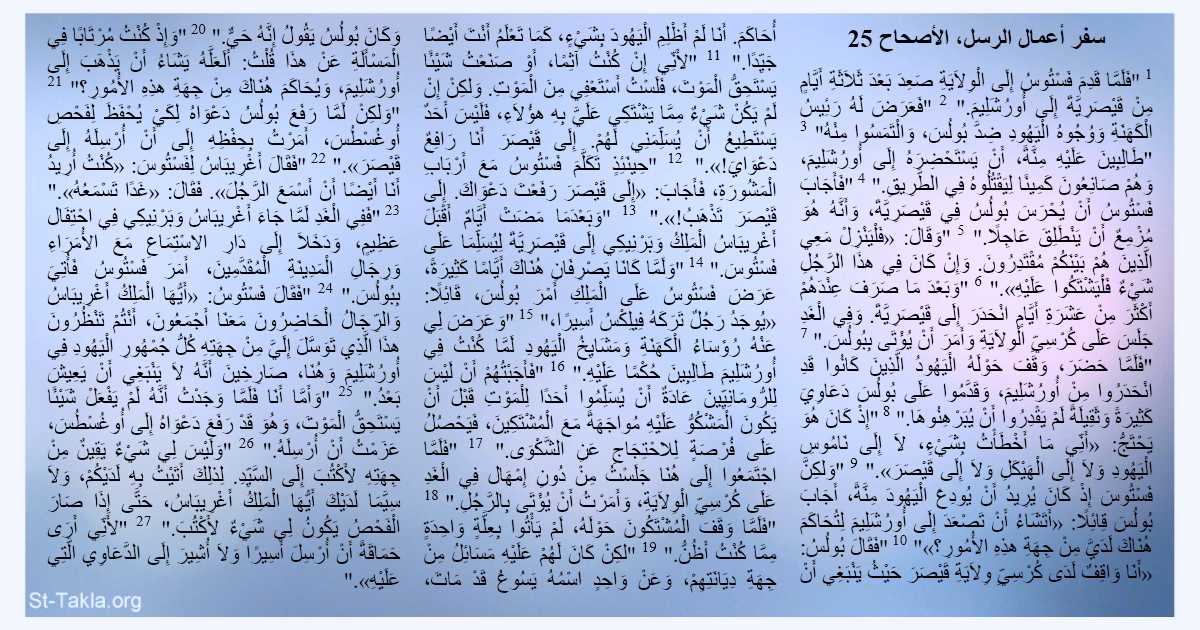 سفر أعمال الرسل، الأصحاح 25
1 "فَلَمَّا قَدِمَ فَسْتُوسُ إِلَى الْوِلاَيَةِ صَعِدَ بَعْدَ ثَلاَثَةِ أَيَّامٍ
مِنْ قَيْصَرِيَّةَ إِلَى أُورُشَلِيمَ." 2 "فَعَرَضَ لَهُ رَئِيسُ
الْكَهَنَةِ وَوُجُوهُ الْيَهُودِ ضِدَّ بُولُسَ، وَالْتَمَسُوا مِنْهُ" 3
"طَالِبِينَ عَلَيْهِ مِنَّةً، أَنْ يَسْتَحْضِرَهُ إِلَى أُورُشَلِيمَ،
وَهُمْ صَانِعُونَ كَمِينًا لِيَقْتُلُوهُ فِي الطَّرِيقِ." 4 "فَأَجَابَ
فَسْتُوسُ أَنْ يُحْرَسَ بُولُسُ فِي قَيْصَرِيَّةَ، وَأَنَّهُ هُوَ
مُزْمِعٌ أَنْ يَنْطَلِقَ عَاجِلًا." 5 "وَقَالَ: «فَلْيَنْزِلْ مَعِي
الَّذِينَ هُمْ بَيْنَكُمْ مُقْتَدِرُونَ. وَإِنْ كَانَ فِي هذَا الرَّجُلِ
شَيْءٌ فَلْيَشْتَكُوا عَلَيْهِ»." 6 "وَبَعْدَ مَا صَرَفَ عِنْدَهُمْ
أَكْثَرَ مِنْ عَشَرَةِ أَيَّامٍ انْحَدَرَ إِلَى قَيْصَرِيَّةَ. وَفِي الْغَدِ
جَلَسَ عَلَى كُرْسِيِّ الْوِلاَيَةِ وَأَمَرَ أَنْ يُؤْتَى بِبُولُسَ." 7
"فَلَمَّا حَضَرَ، وَقَفَ حَوْلَهُ الْيَهُودُ الَّذِينَ كَانُوا قَدِ
انْحَدَرُوا مِنْ أُورُشَلِيمَ، وَقَدَّمُوا عَلَى بُولُسَ دَعَاوِيَ
كَثِيرَةً وَثَقِيلَةً لَمْ يَقْدِرُوا أَنْ يُبَرْهِنُوهَا." 8 "إِذْ كَانَ هُوَ
يَحْتَجُّ: «أَنِّي مَا أَخْطَأْتُ بِشَيْءٍ، لاَ إِلَى نَامُوسِ
الْيَهُودِ وَلاَ إِلَى الْهَيْكَلِ وَلاَ إِلَى قَيْصَرَ»." 9 "وَلكِنَّ
فَسْتُوسَ إِذْ كَانَ يُرِيدُ أَنْ يُودِعَ الْيَهُودَ مِنَّةً، أَجَابَ
بُولُسَ قَائِلًا: «أَتَشَاءُ أَنْ تَصْعَدَ إِلَى أُورُشَلِيمَ لِتُحَاكَمَ
هُنَاكَ لَدَيَّ مِنْ جِهَةِ هذِهِ الأُمُورِ؟»" 10 "فَقَالَ بُولُسُ:
«أَنَا وَاقِفٌ لَدَى كُرْسِيِّ وِلاَيَةِ قَيْصَرَ حَيْثُ يَنْبَغِي أَنْ
أُحَاكَمَ. أَنَا لَمْ أَظْلِمِ الْيَهُودَ بِشَيْءٍ، كَمَا تَعْلَمُ أَنْتَ أَيْضًا
جَيِّدًا." 11 "لأَنِّي إِنْ كُنْتُ آثِمًا، أَوْ صَنَعْتُ شَيْئًا
يَسْتَحِقُّ الْمَوْتَ، فَلَسْتُ أَسْتَعْفِي مِنَ الْمَوْتِ. وَلكِنْ إِنْ
لَمْ يَكُنْ شَيْءٌ مِمَّا يَشْتَكِي عَلَيَّ بِهِ هؤُلاَءِ، فَلَيْسَ أَحَدٌ
يَسْتَطِيعُ أَنْ يُسَلِّمَنِي لَهُمْ. إِلَى قَيْصَرَ أَنَا رَافِعٌ
دَعْوَايَ!»." 12 "حِينَئِذٍ تَكَلَّمَ فَسْتُوسُ مَعَ أَرْبَابِ
الْمَشُورَةِ، فَأَجَابَ: «إِلَى قَيْصَرَ رَفَعْتَ دَعْوَاكَ. إِلَى
قَيْصَرَ تَذْهَبُ!»." 13 "وَبَعْدَمَا مَضَتْ أَيَّامٌ أَقْبَلَ
أَغْرِيبَاسُ الْمَلِكُ وَبَرْنِيكِي إِلَى قَيْصَرِيَّةَ لِيُسَلِّمَا عَلَى
فَسْتُوسَ." 14 "وَلَمَّا كَانَا يَصْرِفَانِ هُنَاكَ أَيَّامًا كَثِيرَةً،
عَرَضَ فَسْتُوسُ عَلَى الْمَلِكِ أَمْرَ بُولُسَ، قَائِلًا:
«يُوجَدُ رَجُلٌ تَرَكَهُ فِيلِكْسُ أَسِيرًا،" 15 "وَعَرَضَ لِي
عَنْهُ رُؤَسَاءُ الْكَهَنَةِ وَمَشَايِخُ الْيَهُودِ لَمَّا كُنْتُ فِي
أُورُشَلِيمَ طَالِبِينَ حُكْمًا عَلَيْهِ." 16 "فَأَجَبْتُهُمْ أَنْ لَيْسَ
لِلرُّومَانِيِّينَ عَادَةٌ أَنْ يُسَلِّمُوا أَحَدًا لِلْمَوْتِ قَبْلَ أَنْ
يَكُونَ الْمَشْكُوُّ عَلَيْهِ مُواجَهَةً مَعَ الْمُشْتَكِينَ، فَيَحْصُلُ
عَلَى فُرْصَةٍ لِلاحْتِجَاجِ عَنِ الشَّكْوَى." 17 "فَلَمَّا
اجْتَمَعُوا إِلَى هُنَا جَلَسْتُ مِنْ دُونِ إِمْهَال فِي الْغَدِ
عَلَى كُرْسِيِّ الْوِلاَيَةِ، وَأَمَرْتُ أَنْ يُؤْتَى بِالرَّجُلِ." 18
"فَلَمَّا وَقَفَ الْمُشْتَكُونَ حَوْلَهُ، لَمْ يَأْتُوا بِعِلَّةٍ وَاحِدَةٍ
مِمَّا كُنْتُ أَظُنُّ." 19 "لكِنْ كَانَ لَهُمْ عَلَيْهِ مَسَائِلُ مِنْ
جِهَةِ دِيَانَتِهِمْ، وَعَنْ وَاحِدٍ اسْمُهُ يَسُوعُ قَدْ مَاتَ،
وَكَانَ بُولُسُ يَقُولُ إِنَّهُ حَيٌّ." 20 "وَإِذْ كُنْتُ مُرْتَابًا فِي
الْمَسْأَلَةِ عَنْ هذَا قُلْتُ: أَلَعَلَّهُ يَشَاءُ أَنْ يَذْهَبَ إِلَى
أُورُشَلِيمَ، وَيُحَاكَمَ هُنَاكَ مِنْ جِهَةِ هذِهِ الأُمُورِ؟" 21
"وَلكِنْ لَمَّا رَفَعَ بُولُسُ دَعْوَاهُ لِكَيْ يُحْفَظَ لِفَحْصِ
أُوغُسْطُسَ، أَمَرْتُ بِحِفْظِهِ إِلَى أَنْ أُرْسِلَهُ إِلَى
قَيْصَرَ»." 22 "فَقَالَ أَغْرِيبَاسُ لِفَسْتُوسَ: «كُنْتُ أُرِيدُ
أَنَا أَيْضًا أَنْ أَسْمَعَ الرَّجُلَ». فَقَالَ: «غَدًا تَسْمَعُهُ»."
23 "فَفِي الْغَدِ لَمَّا جَاءَ أَغْرِيبَاسُ وَبَرْنِيكِي فِي احْتِفَال
عَظِيمٍ، وَدَخَلاَ إِلَى دَارِ الاسْتِمَاعِ مَعَ الأُمَرَاءِ
وَرِجَالِ الْمَدِينَةِ الْمُقَدَّمِينَ، أَمَرَ فَسْتُوسُ فَأُتِيَ
بِبُولُسَ." 24 "فَقَالَ فَسْتُوسُ: «أَيُّهَا الْمَلِكُ أَغْرِيبَاسُ
وَالرِّجَالُ الْحَاضِرُونَ مَعَنَا أَجْمَعُونَ، أَنْتُمْ تَنْظُرُونَ
هذَا الَّذِي تَوَسَّلَ إِلَيَّ مِنْ جِهَتِهِ كُلُّ جُمْهُورِ الْيَهُودِ فِي
أُورُشَلِيمَ وَهُنَا، صَارِخِينَ أَنَّهُ لاَ يَنْبَغِي أَنْ يَعِيشَ
بَعْدُ." 25 "وَأَمَّا أَنَا فَلَمَّا وَجَدْتُ أَنَّهُ لَمْ يَفْعَلْ شَيْئًا
يَسْتَحِقُّ الْمَوْتَ، وَهُوَ قَدْ رَفَعَ دَعْوَاهُ إِلَى أُوغُسْطُسَ،
عَزَمْتُ أَنْ أُرْسِلَهُ." 26 "وَلَيْسَ لِي شَيْءٌ يَقِينٌ مِنْ
جِهَتِهِ لأَكْتُبَ إِلَى السَّيِّدِ. لِذلِكَ أَتَيْتُ بِهِ لَدَيْكُمْ، وَلاَ
سِيَّمَا لَدَيْكَ أَيُّهَا الْمَلِكُ أَغْرِيبَاسُ، حَتَّى إِذَا صَارَ
الْفَحْصُ يَكُونُ لِي شَيْءٌ لأَكْتُبَ." 27 "لأَنِّي أَرَى
حَمَاقَةً أَنْ أُرْسِلَ أَسِيرًا وَلاَ أُشِيرَ إِلَى الدَّعَاوِي الَّتِي
عَلَيْهِ»."
St-Takla.org